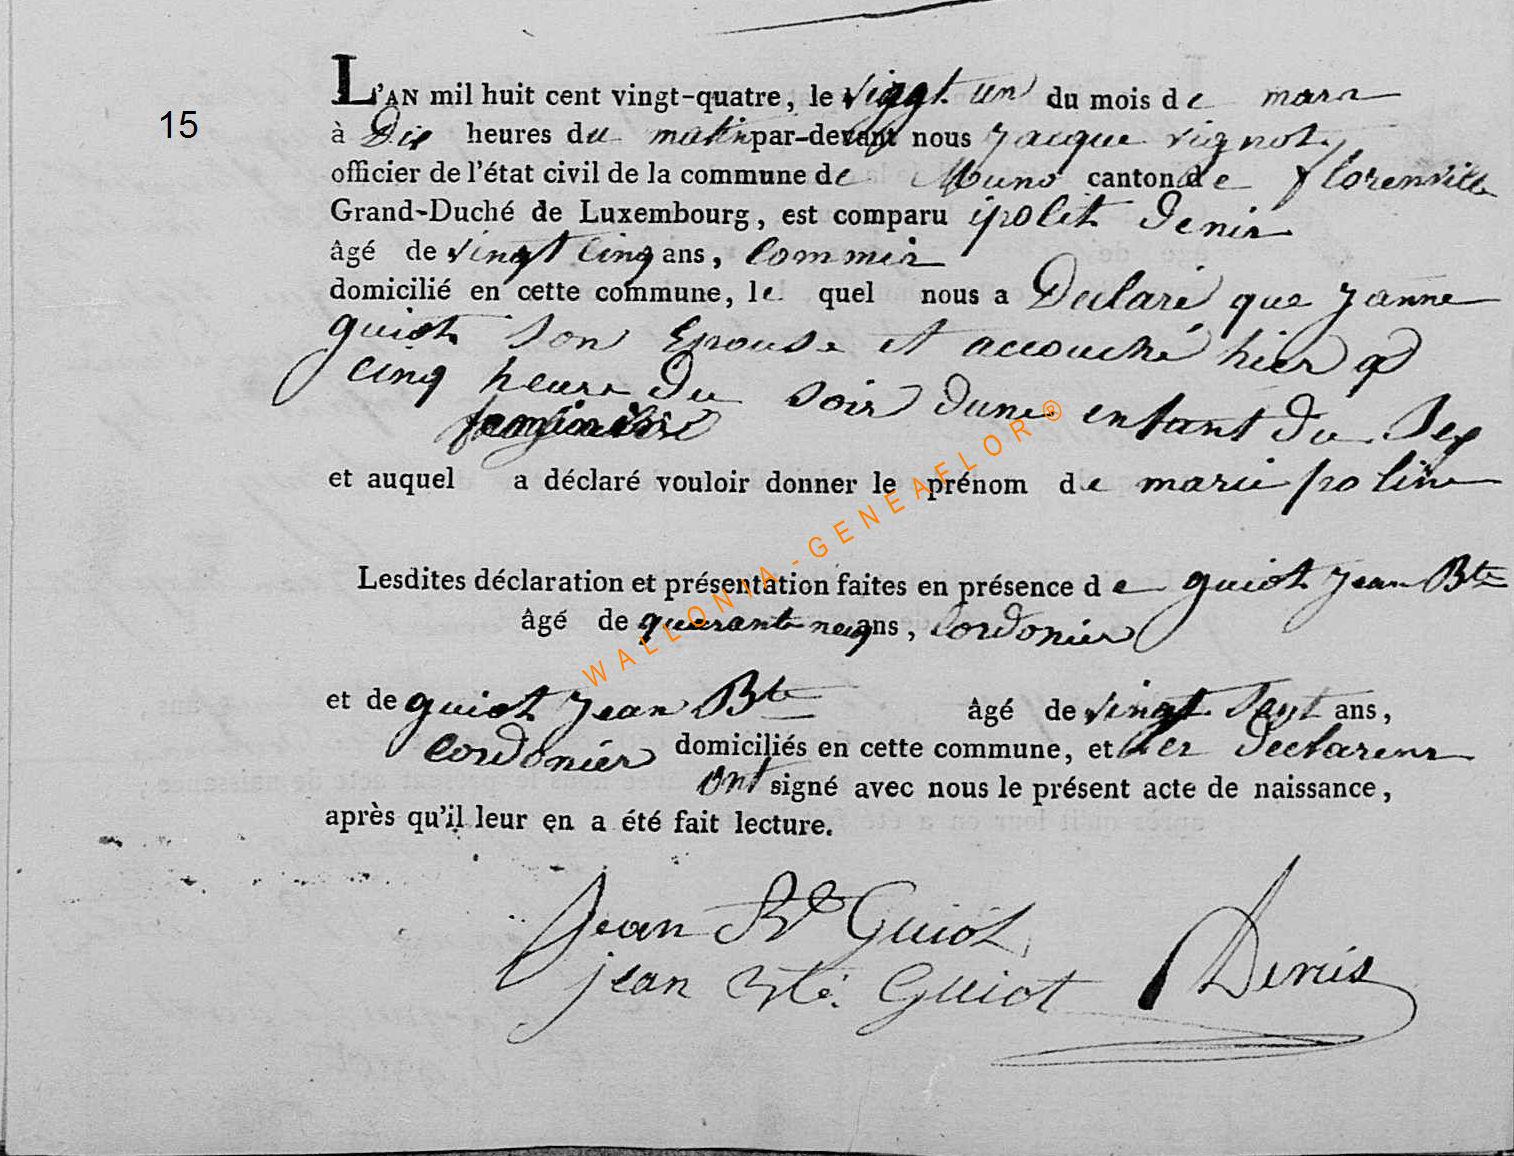 L'AN mil huit cent vingt-quatre, le vingt un du mois de mars
15
à Dix heures du matin par-devant nous jacque vignot
officier de l'état civil de la commune de Muno canton de florenville
Grand-Duché de Luxembourg, est comparu ipolit Denis
âgé de vingt cinq ans, commis
domicilié en cette commune, le quel nous a Declaré que janne
guiot son Epouse et accouché hier a
cinq heure du soir dune enfant du sex
feminine
et auquel a déclaré vouloir donner le prénom de marie poline
WALLONIA-GENEAFLOR®
Lesdites déclaration et présentation faites en présence de guiot jean Bte
âgé de quarante neuf ans, Cordonier
et de guiot jean Bte âgé de vingt sept ans,
cordonier domiciliés en cette commune, et les declarens
ont signé avec nous le présent acte de naissance,
après qu'il leur en a été fait lecture.
Jean Bte Guiot
jean Bte. Guiot Denis